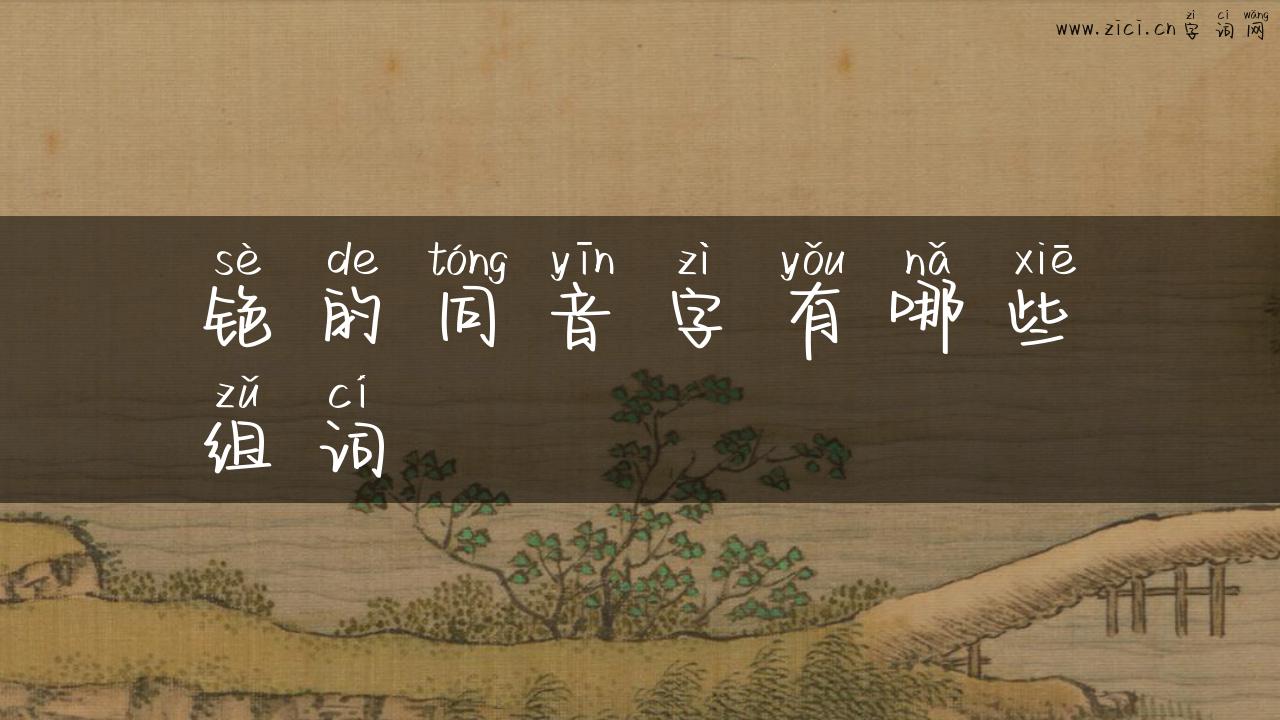 zì cí wǎng
www.zici.cn 字词网
sè de tóng yīn zì yǒu nǎ xiē
铯的同音字有哪些
zǔ cí
组词